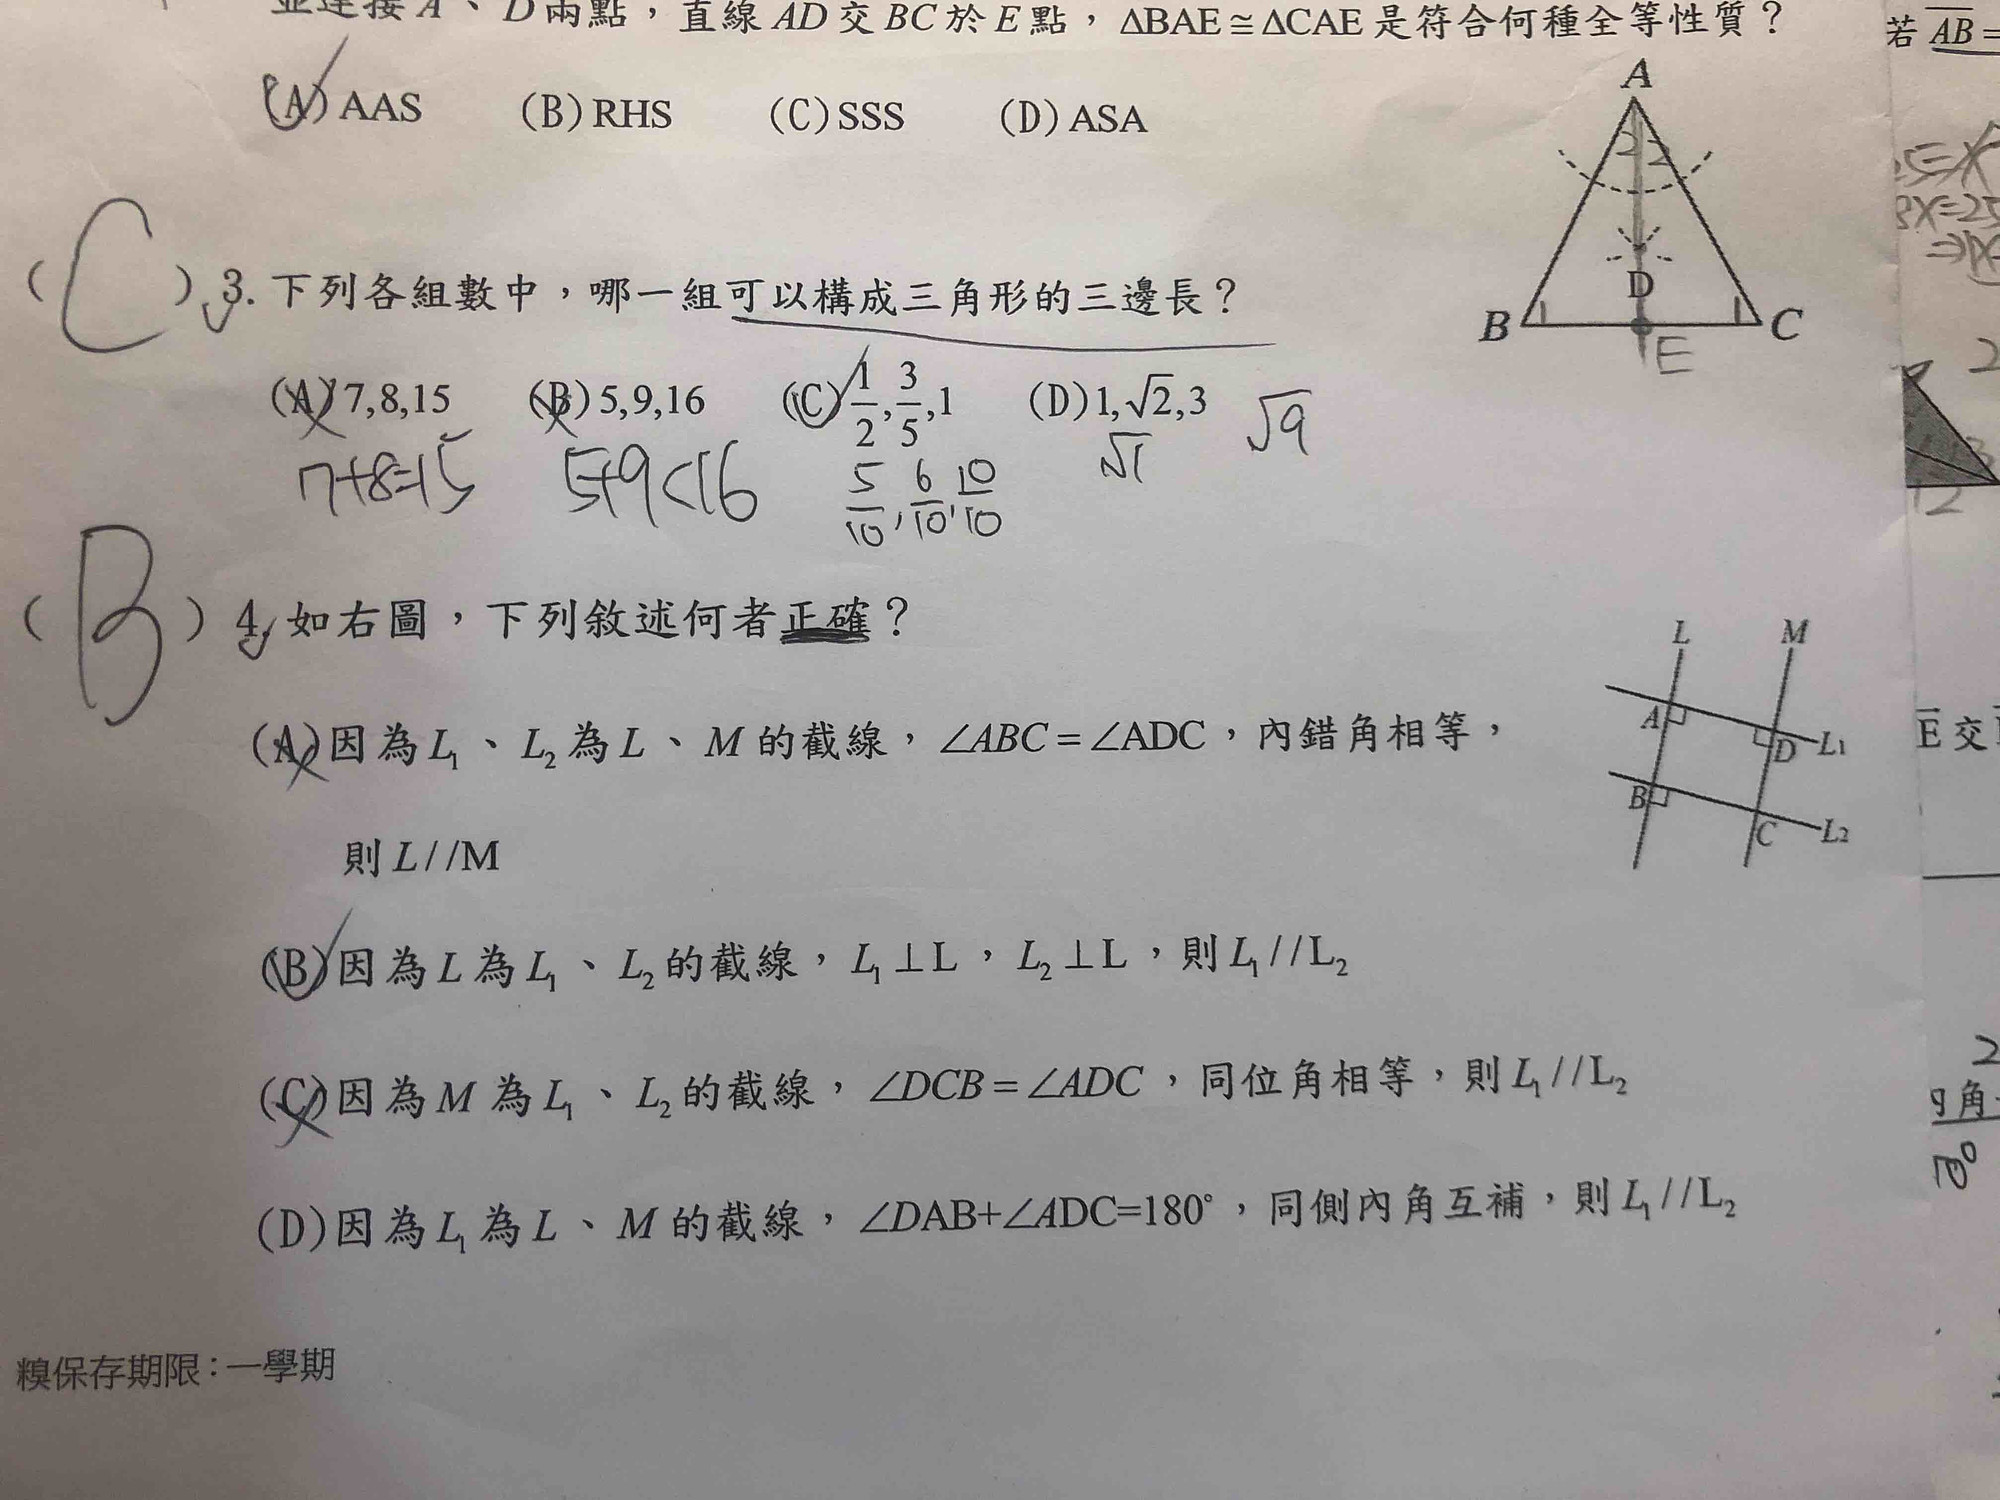 並連接A、D兩點，直線AD交BC於E點，ΔBAE≅ΔCAE是符合何種全等性質？
(A)AAS (B)RHS (C)SSS (D)ASA
A
2 2
D
B C
E
(C)3.下列各組數中，哪一組可以構成三角形的三邊長？
(A)7,8,15 (B)5,9,16 (C)1/2,3/5,1 (D)1,√2,3 √9
7+8=15 5+9<16 5/10,6/10,10/10 √1
(B)4.如右圖，下列敘述何者正確？
L M
A D L₁
B C L₂
(A)因為L₁、L₂為L、M的截線，∠ABC=∠ADC，內錯角相等，
則L//M
(B)因為L為L₁、L₂的截線，L₁⊥L，L₂⊥L，則L₁//L₂
(C)因為M為L₁、L₂的截線，∠DCB=∠ADC，同位角相等，則L₁//L₂
(D)因為L₁為L、M的截線，∠DAB+∠ADC=180°，同側內角互補，則L₁//L₂
保存期限：一學期
若AB=
3X=25
2
12
E交
2
角
70°